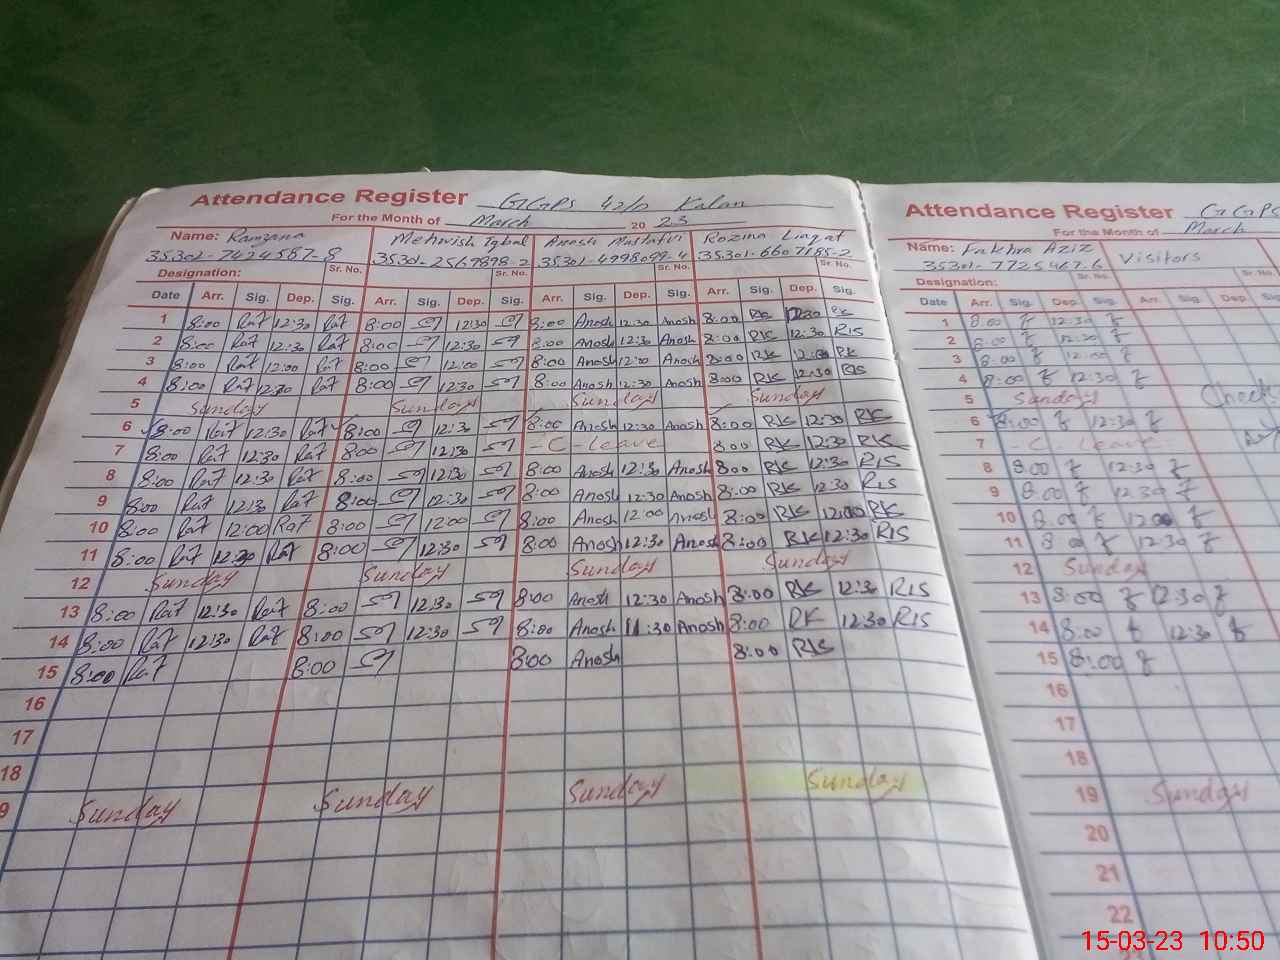 Attendance Register GGPS 42/D Kalan
For the Month of March 20 23
Name: Ramzana Mehwish Iqbal Anosh Mustafvi Rozina Liaqat
35301-7424587-8 35301-2569898-2 35301-4998099-4 35301-6607185-2
Designation: Sr. No. Sr. No. Sr. No. Sr. No.
Date Arr. Sig. Dep. Sig. Arr. Sig. Dep. Sig. Arr. Sig. Dep. Sig. Arr. Sig. Dep. Sig.
1 8:00 12:30 8:00 12:30 8:00 Anosh 12:30 Anosh 8:00 RK 12:30 RK
2 8:00 12:30 8:00 12:30 8:00 Anosh 12:30 Anosh 8:00 RK 12:30 RK
3 8:00 12:00 8:00 12:00 8:00 Anosh 12:00 Anosh 8:00 RK 12:00 RK
4 8:00 12:30 8:00 12:30 8:00 Anosh 12:30 Anosh 8:00 RK 12:30 RK
5 Sunday Sunday Sunday Sunday
6 8:00 12:30 8:00 12:30 8:00 Anosh 12:30 Anosh 8:00 RK 12:30 RK
7 8:00 12:30 8:00 12:30 - C - Leave 8:00 RK 12:30 RK
8 8:00 12:30 8:00 12:30 8:00 Anosh 12:30 Anosh 8:00 RK 12:30 RK
9 8:00 12:30 8:00 12:30 8:00 Anosh 12:30 Anosh 8:00 RK 12:30 RK
10 8:00 12:00 8:00 12:00 8:00 Anosh 12:00 Anosh 8:00 RK 12:00 RK
11 8:00 12:30 8:00 12:30 8:00 Anosh 12:30 Anosh 8:00 RK 12:30 RK
12 Sunday Sunday Sunday Sunday
13 8:00 12:30 8:00 12:30 8:00 Anosh 12:30 Anosh 8:00 RK 12:30 RK
14 8:00 12:30 8:00 12:30 8:00 Anosh 11:30 Anosh 8:00 RK 12:30 RK
15 8:00 8:00 8:00 Anosh 8:00 RK
16
17
18
9 Sunday Sunday Sunday Sunday
Attendance Register GGPS
For the Month of March
Name: Fakhra Aziz Visitors
35301-7725467-6 Sr. No.
Designation: Sr. No.
Date Arr. Sig. Dep. Sig. Arr. Sig. Dep.
1 8:00 12:30
2 8:00 12:30
3 8:00 12:00
4 8:00 12:30
5 Sunday
6 8:00 12:30
7 - C - Leave
8 8:00 12:30
9 8:00 12:30
10 8:00 12:00
11 8:00 12:30
12 Sunday
13 8:00 12:30
14 8:00 12:30
15 8:00
16
17
18
19 Sunday
20
21
22
15-03-23 10:50